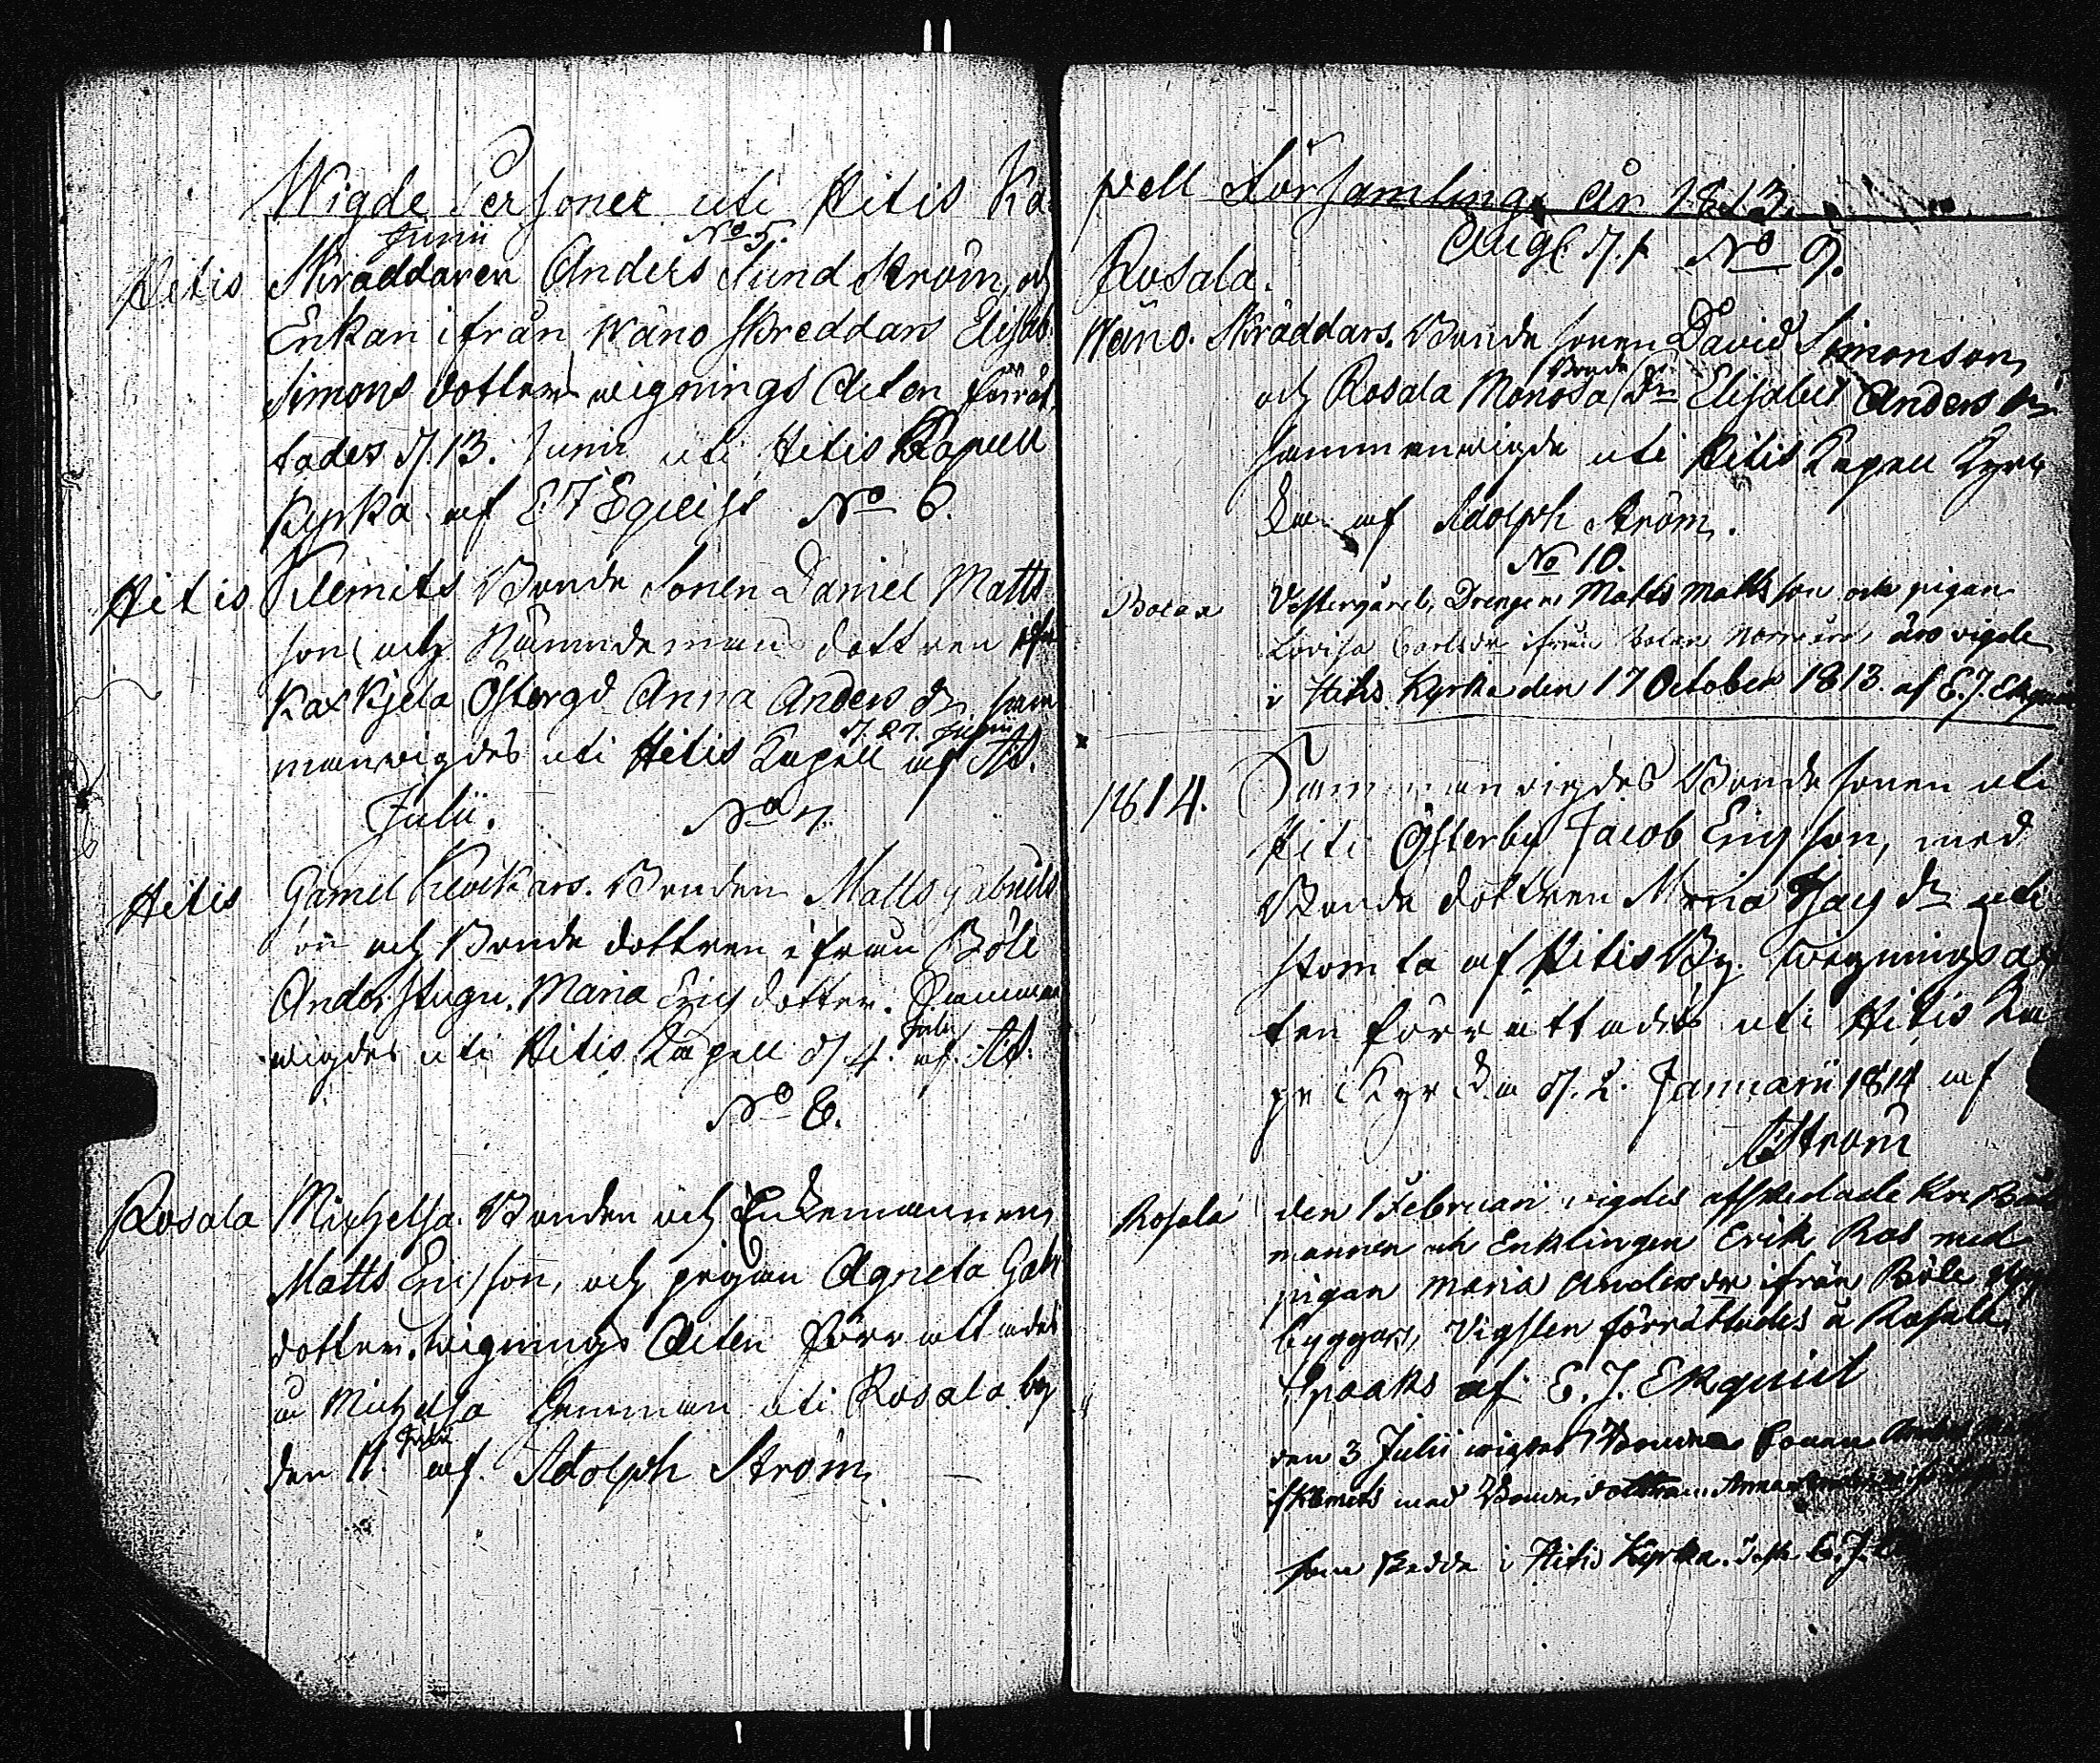 Wigde Personer uti Hitis Ka
Junii No 5.
Hitis Skräddaren Anders Sundström, och
Enkan ifrån Wäno Skreddars Elisab.
Simons dotter wignings Acten förrät
tades d. 13. Junii uti Hitis Kapell
Kyrka af E J Eqwist No 6.
Hitis Klemits Bonde Sonen Daniel Matts
son och Nämndemans dottren ifr
Kaxkjela Östergd Anna Anders dr sam
d. 27. Junii
manwigdes uti Hitis Kapell af AS.
Julii. No 7.
Hitis Gamel Klockars. Bonden Matts Gabriels
on och Bonde dottren ifrån Böle
Anderstugu. Maria Erics dotter. Samman
Julii
wigdes uti Hitis Kapell d. 4. af AS.
No 8.
Rosala Michelsa. Bonden och Enkemannen
Matts Ericsson, och pigan Agneta Gabr
dotter. Wignings Acten förrättades
å Michelsa hemman uti Rosala by
Julii
den 11. af Adolph Ström.
pell Församling År 1813.
Aug. d. 1 No 9.
Rosala.
Wäno. Skräddars. Bonde sonen David Simonson
Bonde
och Rosala Monosa dr Elisabet Anders dr
sammanwigde uti Hitis Kapell Kyrk
ka af Adolph Ström.
No 10.
Bolax Västergård, Drengen Matts Mattsson och pigan
Lovisa Carlsdr ifrån Bolax Norrgård, äro vigde
i Hitis Kyrka den 17 October 1813. af E. J. Ekquist
1814. Sammanwigdes Bonde sonen uti
Hiti Österby Jacob Ericsson, med
Bonde dottren Maria Isacs dr uti
Stomta af Hitis By. Wignings ac
ten förrättades uti Hitis Ka
pe Kyrka d. 2. Januarii 1814 af
AStröm
Rosala den 1 Februari vigdes afskedade
mannen och Enklingen Erik Ros med
pigan Maria Andersdr ifrån Böle
byggars, Vigslen förrättades å Rosala
Spaaks af E. J. Ekquist
den 3 Julii wigdes Bonde Sonen
med Bonde dottren Anna
som skedde i Hitis Kyrka. E. J.